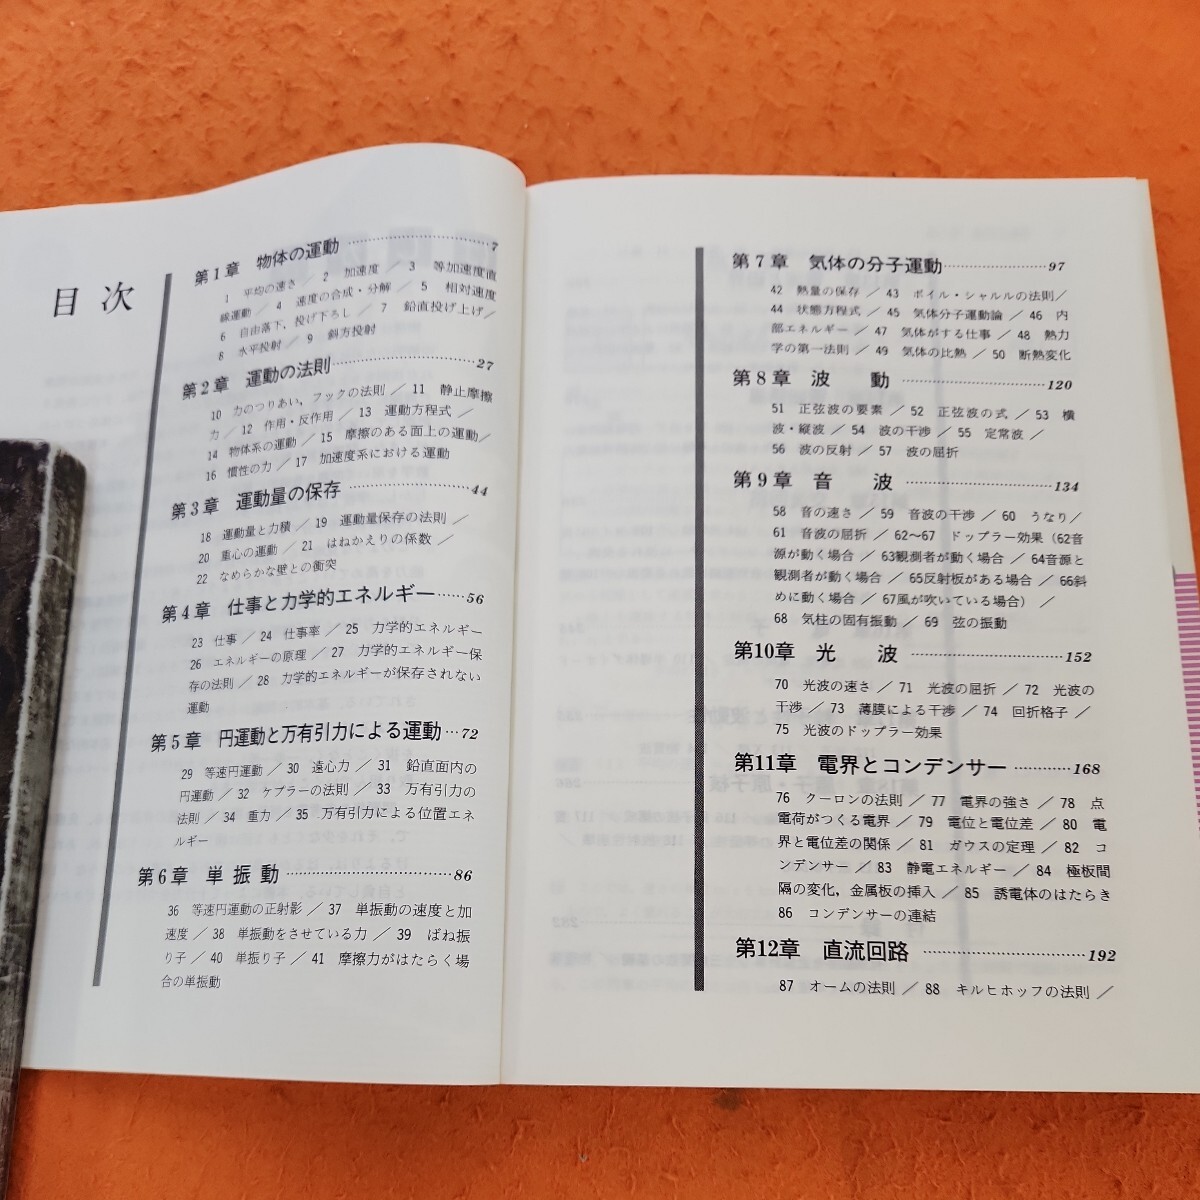 目次
第1章 物体の運動 ……………… 7
1 平均の速さ／2 加速度／3 等加速度直
線運動／4 速度の合成・分解／5 相対速度
6 自由落下，投げ下ろし／7 鉛直投げ上げ／
8 水平投射／9 斜方投射
第2章 運動の法則 ……………… 27
10 力のつりあい，フックの法則／11 静止摩擦
力／12 作用・反作用／13 運動方程式／
14 物体系の運動／15 摩擦のある面上の運動／
16 慣性の力／17 加速度系における運動
第3章 運動量の保存 ……………… 44
18 運動量と力積／19 運動量保存の法則／
20 重心の運動／21 はねかえりの係数／
22 なめらかな壁との衝突
第4章 仕事と力学的エネルギー …… 56
23 仕事／24 仕事率／25 力学的エネルギー
26 エネルギーの原理／27 力学的エネルギー保
存の法則／28 力学的エネルギーが保存されない
運動
第5章 円運動と万有引力による運動 … 72
29 等速円運動／30 遠心力／31 鉛直面内の
円運動／32 ケプラーの法則／33 万有引力の
法則／34 重力／35 万有引力による位置エネ
ルギー
第6章 単振動 ……………… 86
36 等速円運動の正射影／37 単振動の速度と加
速度／38 単振動をさせている力／39 ばね振
り子／40 単振り子／41 摩擦力がはたらく場
合の単振動
第7章 気体の分子運動 ……………… 97
42 熱量の保存／43 ボイル・シャルルの法則／
44 状態方程式／45 気体分子運動論／46 内
部エネルギー／47 気体がする仕事／48 熱力
学の第一法則／49 気体の比熱／50 断熱変化
第8章 波動 ……………… 120
51 正弦波の要素／52 正弦波の式／53 横
波・縦波／54 波の干渉／55 定常波／
56 波の反射／57 波の屈折
第9章 音波 ……………… 134
58 音の速さ／59 音波の干渉／60 うなり／
61 音波の屈折／62〜67 ドップラー効果（62音
源が動く場合／63観測者が動く場合／64音源と
観測者が動く場合／65反射板がある場合／66斜
めに動く場合／67風が吹いている場合）／
68 気柱の固有振動／69 弦の振動
第10章 光波 ……………… 152
70 光波の速さ／71 光波の屈折／72 光波の
干渉／73 薄膜による干渉／74 回折格子／
75 光波のドップラー効果
第11章 電界とコンデンサー ………… 168
76 クーロンの法則／77 電界の強さ／78 点
電荷がつくる電界／79 電位と電位差／80 電
界と電位差の関係／81 ガウスの定理／82 コ
ンデンサー／83 静電エネルギー／84 極板間
隔の変化，金属板の挿入／85 誘電体のはたらき
86 コンデンサーの連結
第12章 直流回路 ……………… 192
87 オームの法則／88 キルヒホッフの法則／